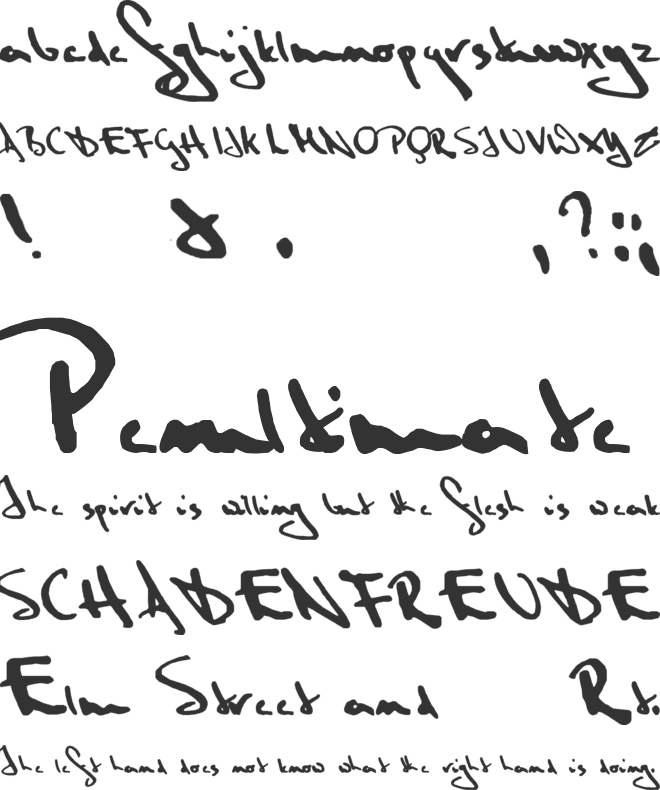 abcdefghijklmnopqrstuvwxyz
ABCDEFGHIJKLMNOPQRSTUVWXYZ
! & . , ? : ;
Penultimate
The spirit is willing but the flesh is weak
SCHADENFREUDE
Elm Street and Rt.
The left hand does not know what the right hand is doing.